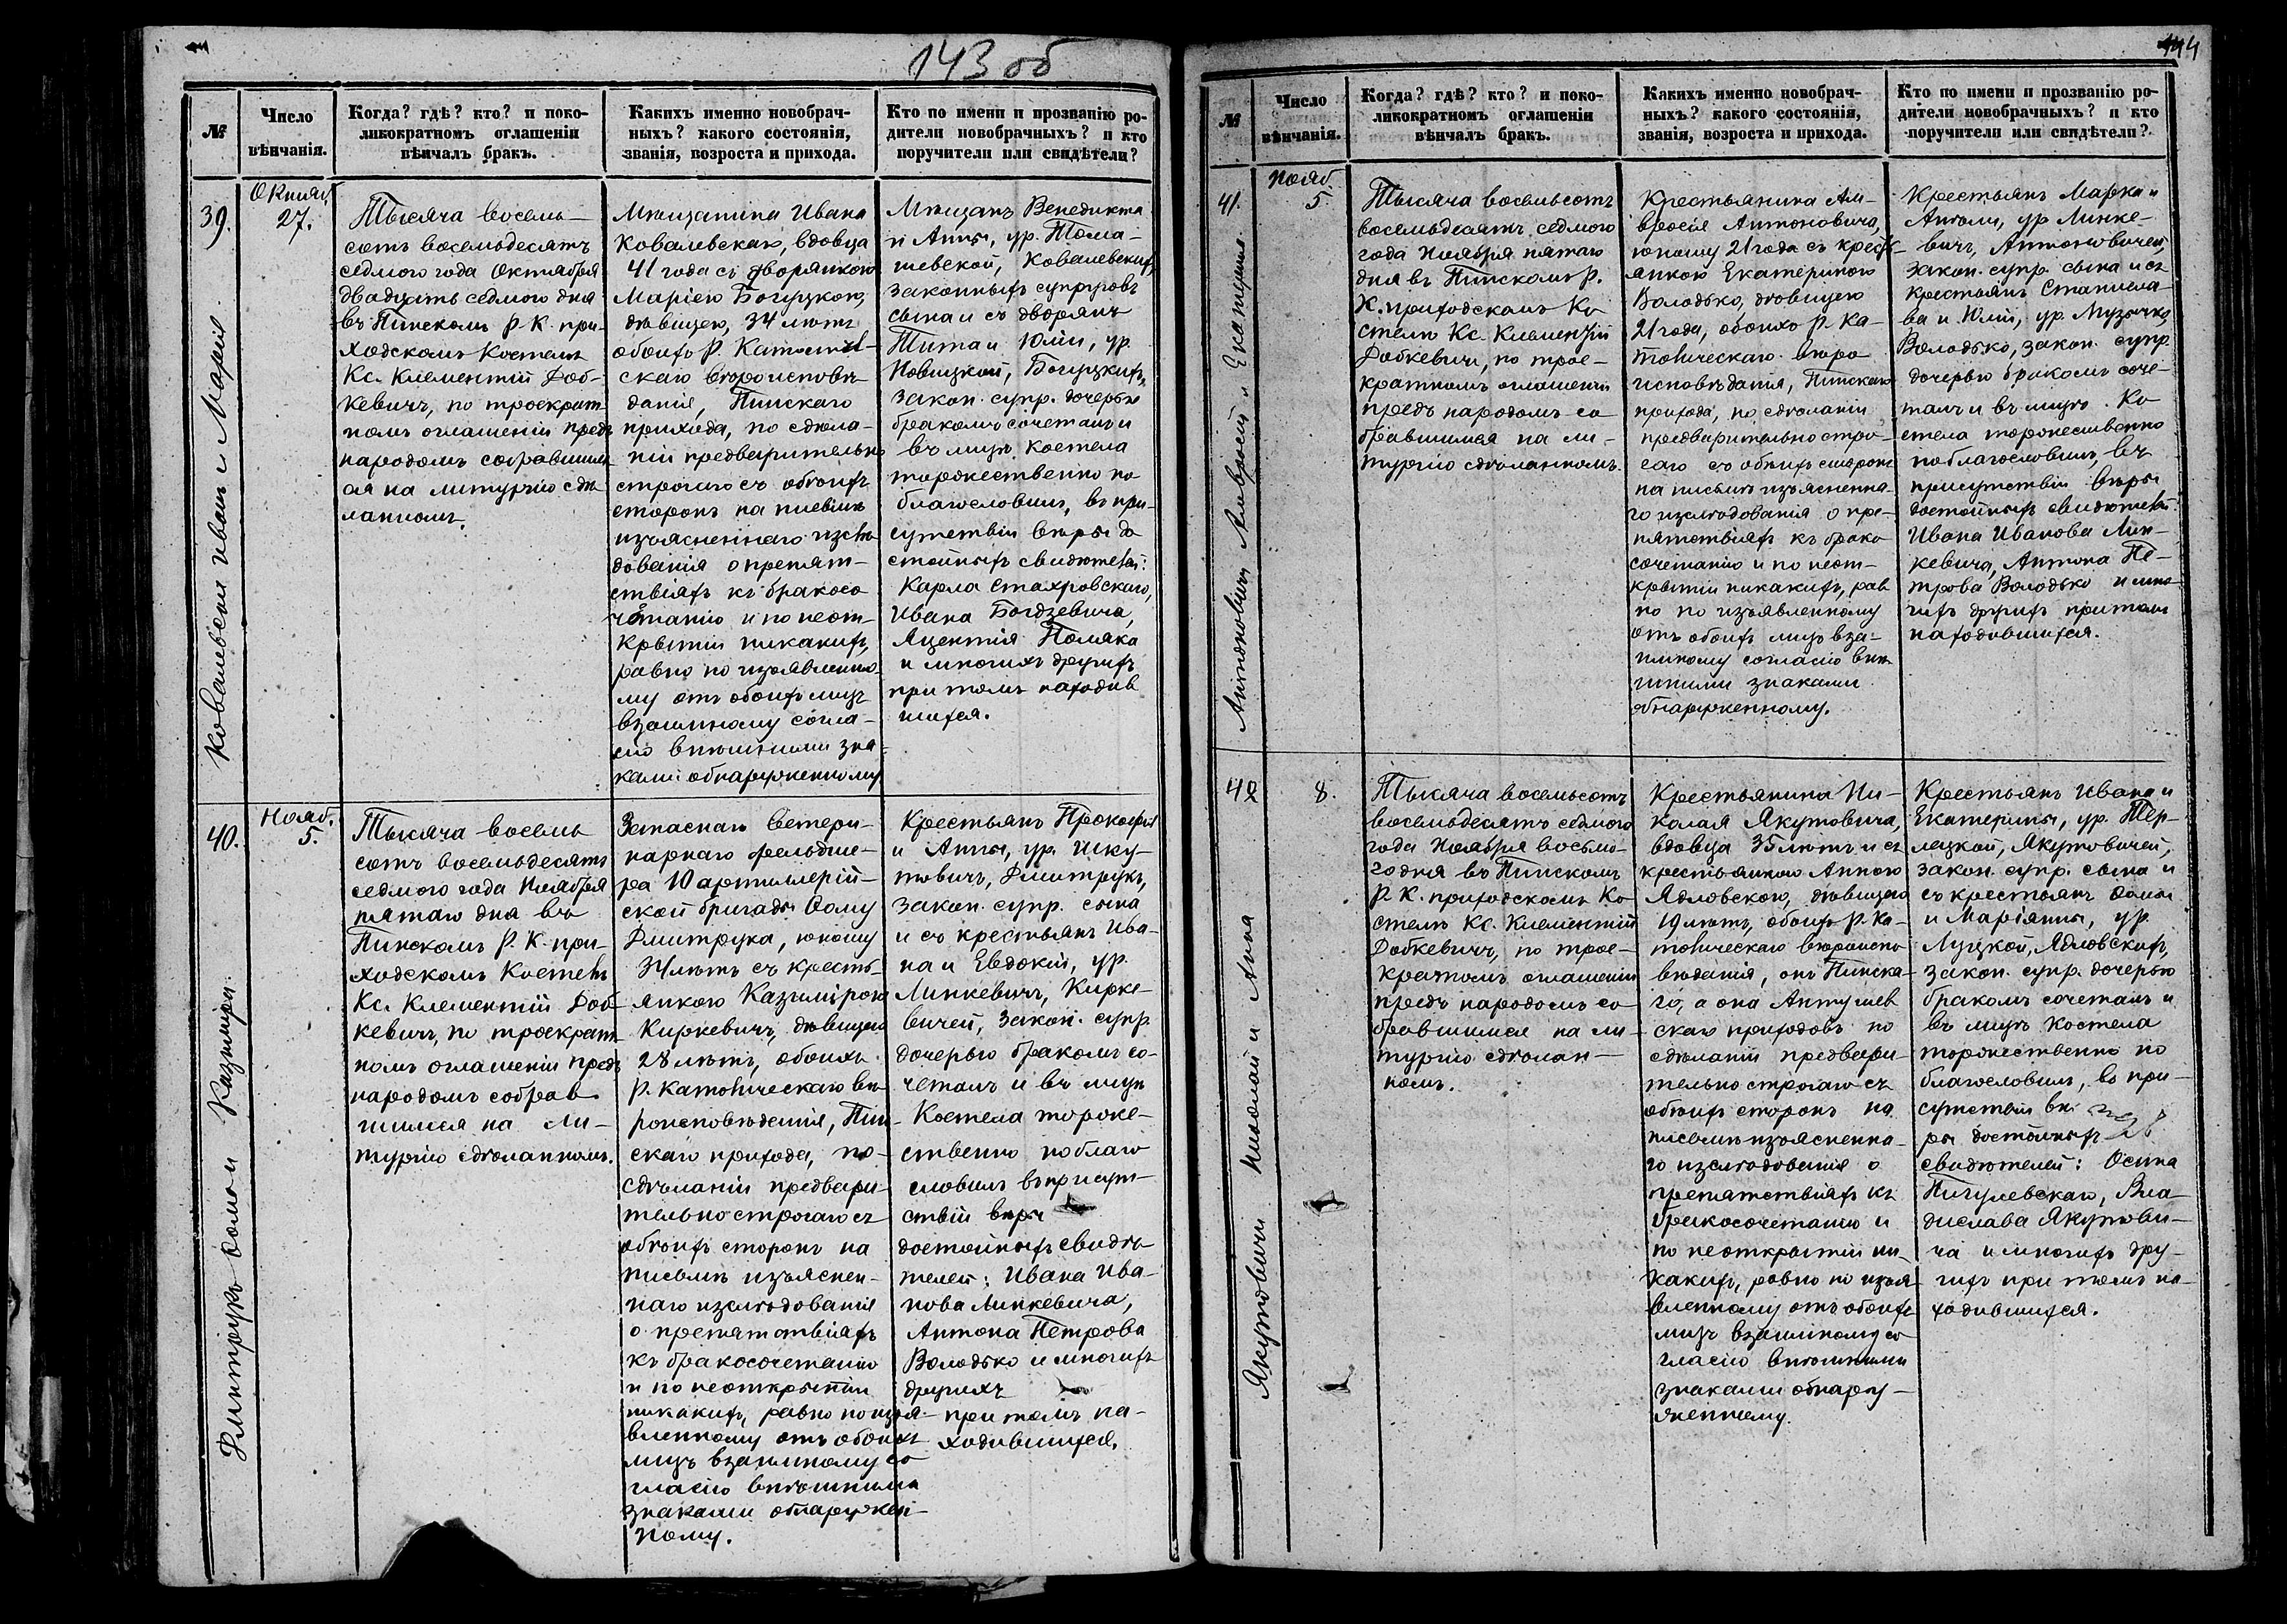 143 об
144
№
Число
вѣнчанія.
Когда? гдѣ? кто? и поко-
ликократномъ оглашеніи
вѣнчалъ бракъ.
Какихъ именно новобрач-
ныхъ? какого состоянія,
званія, возроста и прихода.
Кто по имени и прозванію ро-
дители новобрачныхъ? и кто
поручители или свидѣтели?
39.
Ковалевскіи Иванъ и Марія
Октяб.
27.
Тысяча восемь-
сотъ восемьдесятъ
седмого года Октября
двадцать седмого дня
въ Пинскомъ Р. К. при-
ходскомъ Костелѣ
Кс. Клементій Доб-
кевичъ, по троекрат
номъ оглашеніи предъ
народомъ собравшим
ся на литургію сдѣ
ланномъ.
Мѣщанина Ивана
Ковалевскаго, вдовца
41 года съ дворянкою
Маріею Богуцкою,
дѣвицею, 34 лѣтъ
обоихъ Р. Католиче-
скаго вѣроисповѣ-
данія, Пинскаго
прихода, по сдѣла-
ніи предварительно
строгаго съ обоихъ
сторонъ на письмѣ
изъясненнаго изслѣ
дованія о препят-
ствіяхъ къ бракосо
четанію и по неот-
крытіи никакихъ,
равно по изъявленно
му отъ обоихъ лицъ
взаимному согла-
сію внѣшними зна-
ками обнаруженному
Мѣщанъ Венедикта
и Анны, ур. Тома-
шевской, Ковалевскихъ,
законныхъ супруговъ
сына и съ дворянъ
Тита и Юліи, ур.
Новицкой, Богуцкихъ,
закон. супр. дочерью
бракомъ сочеталъ и
въ лицѣ Костела
торжественно по
благословилъ, въ при-
сутствіи вѣры до
стойныхъ свидѣтелей:
Карла Стахровскаго,
Ивана Богдзевича,
Яцентія Поляка
и многихъ другихъ
при томъ находив
шихся.
40.
Дмитрукъ Ѳома и Казиміра
Нояб.
5.
Тысяча восемь
сотъ восемьдесятъ
седмого года Ноября
пятаго дня въ
Пинскомъ Р. К. при-
ходскомъ Костелѣ
Кс. Клементій Доб-
кевичъ, по троекрат
номъ оглашеніи предъ
народомъ собрав
шимся на ли-
тургію сдѣланномъ.
Запаснаго ветери-
нарнаго фельдше-
ра 10 артиллерій-
ской бригады Ѳому
Дмитрука, юношу
34 лѣтъ съ кресть-
янкою Казимірою
Киркевичъ, дѣвицею
28 лѣтъ, обоихъ
Р. Католическаго вѣ-
роисповѣданія, Пин-
скаго прихода, по
сдѣланіи предвари-
тельно строгаго съ
обоихъ сторонъ на
письмѣ изъяснен-
наго изслѣдованія
о препятствіяхъ
къ бракосочетанію
и по неоткрытіи
никакихъ, равно по изъя-
вленному отъ обоихъ
лицъ взаимному со
гласію внѣшними
знаками обнаружен-
ному.
Крестьянъ Прокофія
и Анны, ур. Шку-
товичъ, Дмитрукъ,
закон. супр. сына
и съ крестьянъ Ива-
на и Евдокіи, ур.
Линкевичъ, Кирке-
вичей, закон. супр.
дочерью бракомъ со-
четалъ и въ лицѣ
Костела торже-
ственно поблаго
словилъ въ присут-
ствіи вѣры
достойныхъ свидѣ-
телей: Ивана Ива-
нова Линкевича,
Антона Петрова
Володько и многихъ
другихъ
при томъ на-
ходившихся.
№
Число
вѣнчанія.
Когда? гдѣ? кто? и поко-
ликократномъ оглашеніи
вѣнчалъ бракъ.
Какихъ именно новобрач-
ныхъ? какого состоянія,
званія, возроста и прихода.
Кто по имени и прозванію ро-
дители новобрачныхъ? и кто
поручители или свидѣтели?
41.
Антоновичи Амвросій и Екатерина
Нояб.
5.
Тысяча восемьсотъ
восемьдесятъ седмого
года Ноября пятаго
дня въ Пинскомъ Р.
К. приходскомъ Ко
стелѣ Кс. Клементій
Добкевичъ, по трое-
кратномъ оглашеніи
предъ народомъ со
бравшимся на ли-
тургію сдѣланномъ.
Крестьянина Ам-
вросія Антоновича,
юношу 21 года съ кресть
янкою Екатериною
Володько, дѣвицею
21 года, обоихъ Р. Ка-
толическаго вѣро
исповѣданія, Пинскаго
прихода, по сдѣланіи
предварительно стро-
гаго съ обоихъ сторонъ
на письмѣ изъясненна-
го изслѣдованія о пре-
пятствіяхъ къ брако
сочетанію и по неот-
крытіи никакихъ, рав
но по изъявленному
отъ обоихъ лицъ вза-
имному согласію внѣ
шними знаками
обнаруженному.
Крестьянъ Марка и
Анголи, ур. Линке-
вичъ, Антоновичей,
закон. супр. сына и съ
крестьянъ Станисла-
ва и Юліи, ур. Музычко,
Володько, закон. супр.
дочерью бракомъ соче-
талъ и въ лицѣ Ко
стела торжественно
поблагословилъ, въ
присутствіи вѣры
достойныхъ свидѣтелей:
Ивана Иванова Лин-
кевича, Антона Пе-
трова Володько и мно-
гихъ другихъ при томъ
находившихся.
42
Якутовичи Николай и Анна
8.
Тысяча восемьсотъ
восемьдесятъ седмого
года Ноября восьмо-
го дня въ Пинскомъ
Р. К. приходскомъ Ко
стелѣ Кс. Клементій
Добкевичъ, по трое-
кратномъ оглашеніи
предъ народомъ со
бравшимся на ли-
тургію сдѣлан-
номъ.
Крестьянина Ни-
колая Якутовича,
вдовца 35 лѣтъ и съ
крестьянкою Анною
Ядловскою, дѣвицею
19 лѣтъ, обоихъ Р. Ка-
толическаго вѣроиспо
вѣданія, онъ Пинска-
го, а она Антушев
скаго приходовъ по
сдѣланіи предвари-
тельно строгаго съ
обоихъ сторонъ на
письмѣ изъясненна-
го изслѣдованія о
препятствіяхъ къ
бракосочетанію и
по неоткрытіи ни-
какихъ, равно по изъя-
вленному отъ обоихъ
лицъ взаимному со
гласію внѣшними
знаками обнару-
женному.
Крестьянъ Ивана и
Екатерины, ур. Тер-
лецкой, Якутовичей,
закон. супр. сына и
съ крестьянъ Ѳомы
и Маріянны, ур.
Луцкой, Ядловскихъ,
закон. супр. дочерью
бракомъ сочеталъ и
въ лицѣ Костела
торжественно по
благословилъ, въ при-
сутствіи вѣ
ры достойныхъ
свидѣтелей: Осипа
Пигулевскаго, Вла-
дислава Якутови-
ча и многихъ дру-
гихъ при томъ на-
ходившихся.